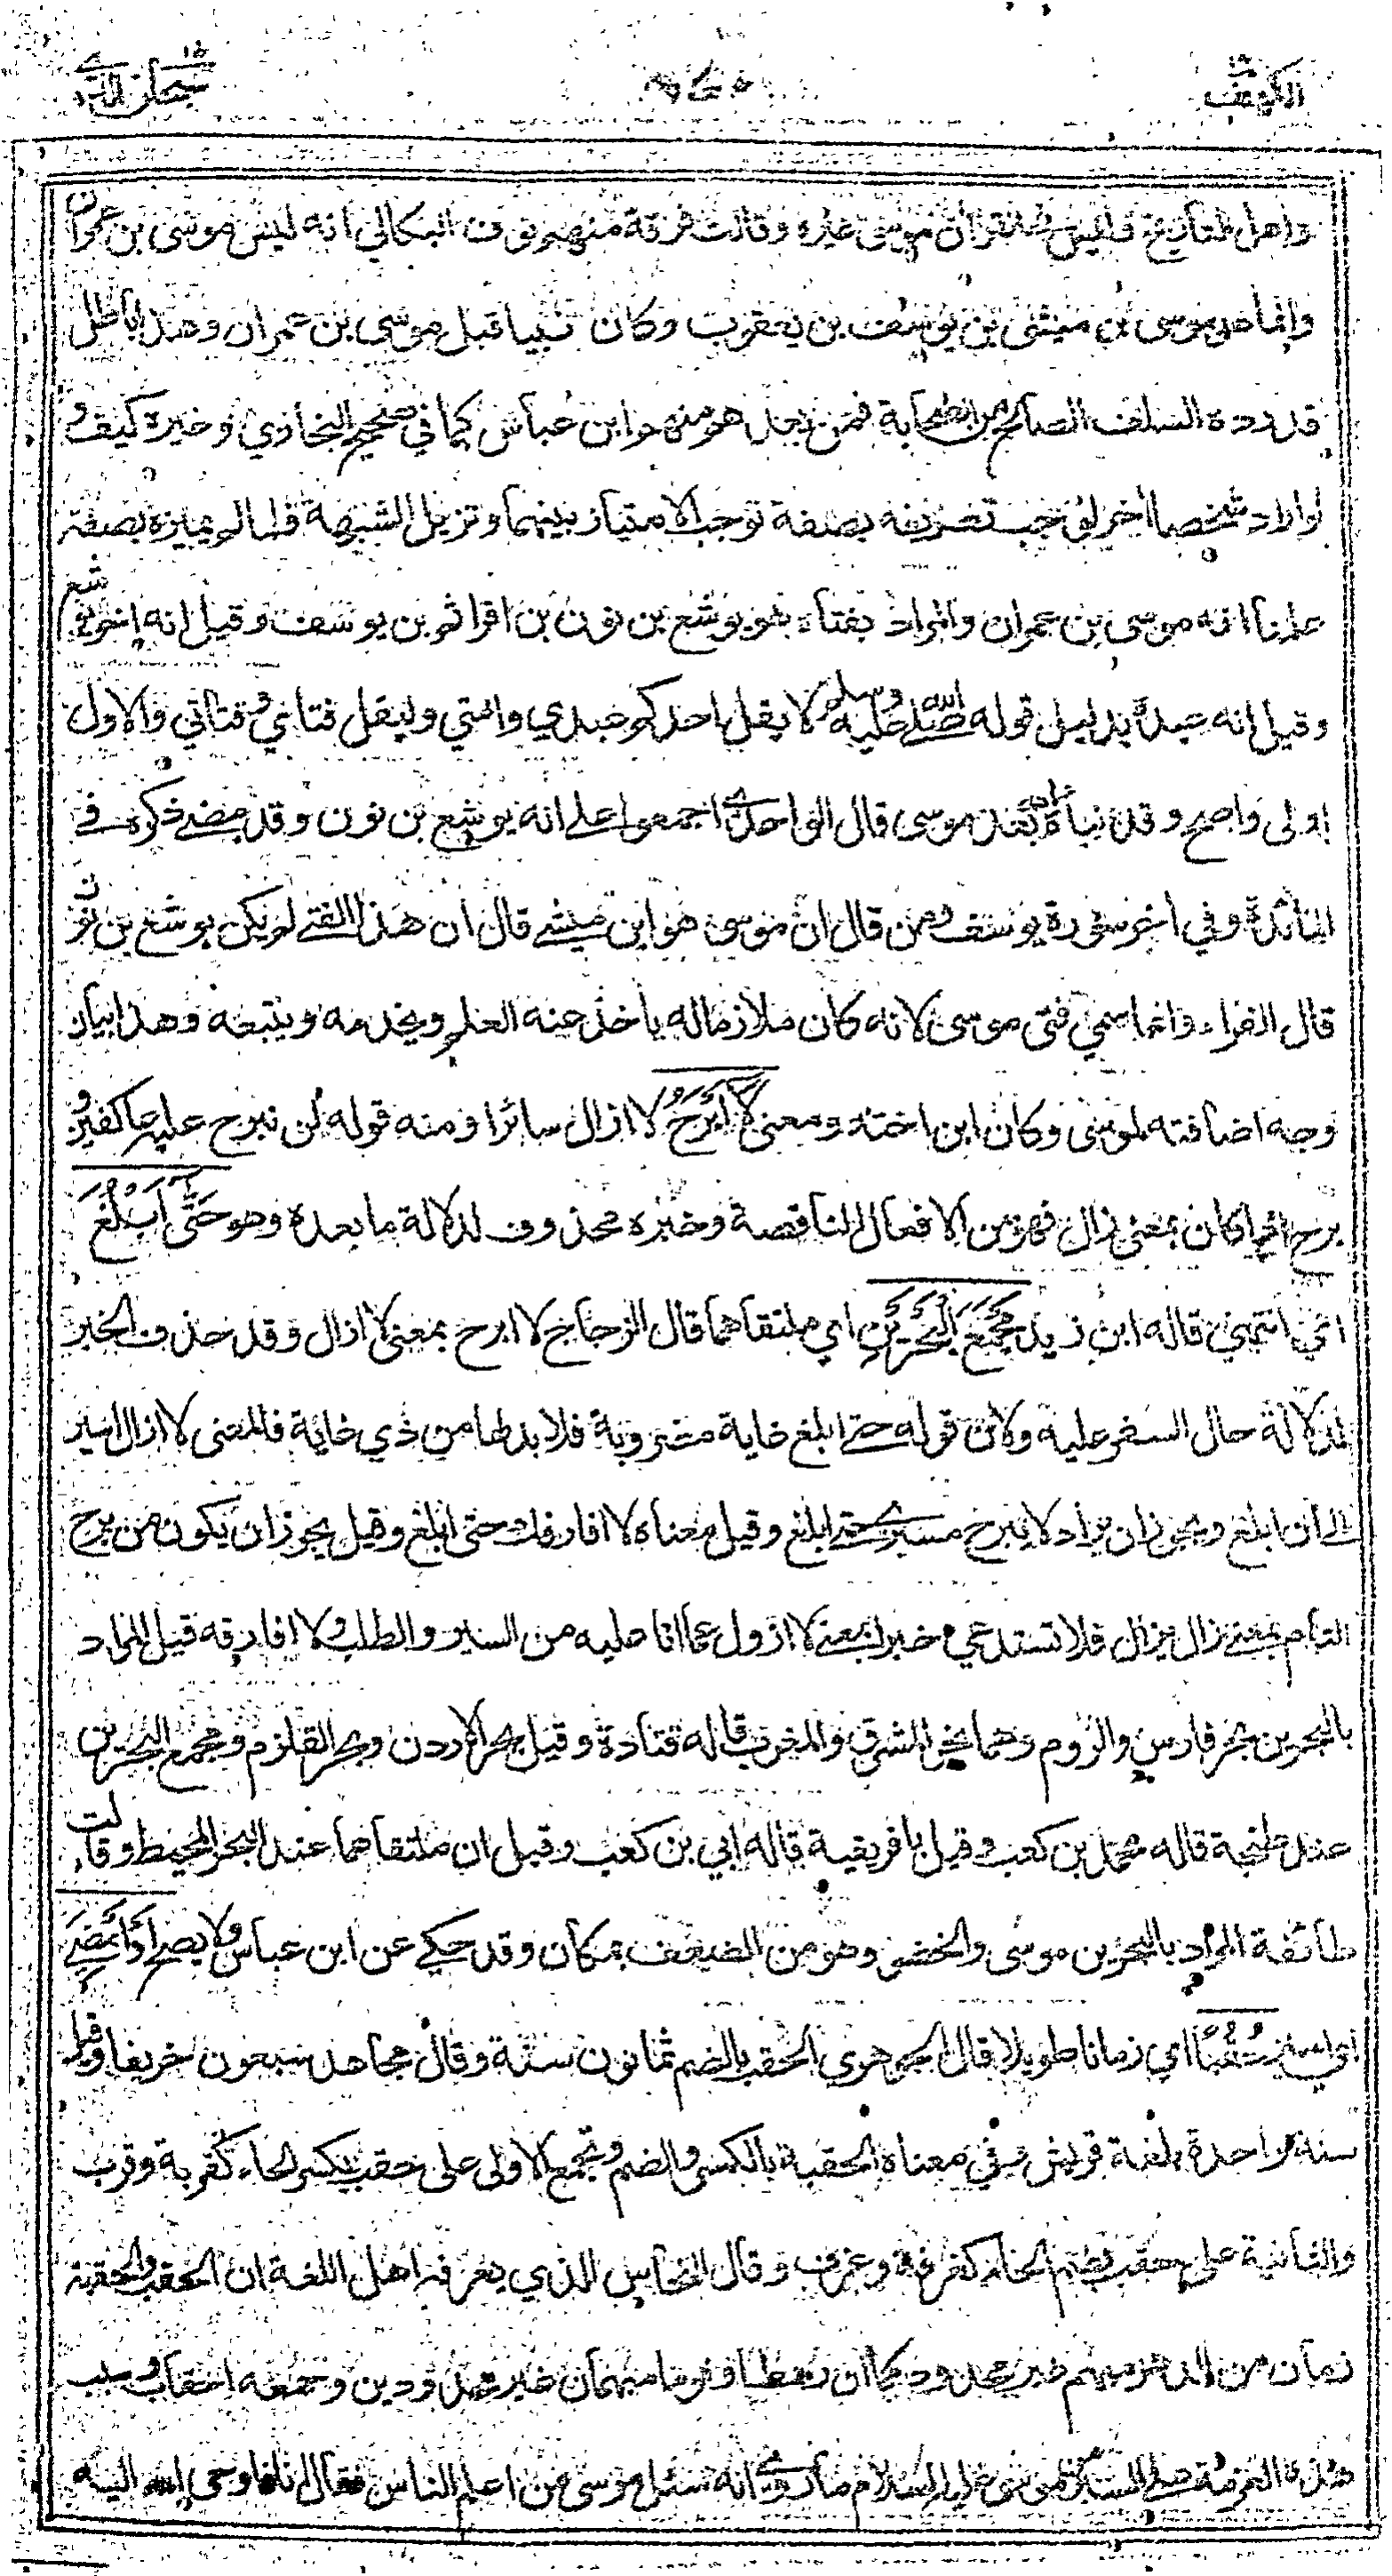 الكهف ١٨ سبحن الذي ١٥
واهل التاريخ فليس في القران موسى غيره وقالت فرقة منهم نوف البكالي انه ليس موسى بن عمران
وانما هو موسى بن ميشى بن يوسف بن يعقوب وكان نبيا قبل موسى بن عمران وهذا باطل
قد رده السلف الصالح من الصحابة فمن بعدهم ومنهم ابن عباس كما في صحيح البخاري وغيره كيف و
لو اراد شخصا اخر لوجب تعريفه بصفة توجب الامتياز بينهما وتزيل الشبهة فلما لم يميزه بصفة
علمنا انه موسى بن عمران والمراد بفتاه هو يوشع بن نون بن افراثم بن يوسف وقيل انه اخو يوشع
وقيل انه عبده بدليل قوله صلى الله عليه وسلم لا يقل احدكم عبدي وامتي وليقل فتاي وفتاتي والاول
اولى واصح وقد نبأه الله بعد موسى قال الواحدي اجمعوا على انه يوشع بن نون وقد مضى ذكره في
المائدة وفي اخر سورة يوسف ومن قال ان موسى هو ابن ميشى قال ان هذا الفتى لم يكن يوشع بن نون
قال الفراء وانما سمي فتى موسى لانه كان ملازما له يأخذ عنه العلم ويخدمه ويتبعه وهذا بيان
وجه اضافته لموسى وكان ابن اخته ومعنى لا أَبْرَحُ لا ازال سائرا ومنه قوله لن نبرح عليه عاكفين و
برح اذا كان بمعنى زال فهو من الافعال الناقصة وخبره محذوف لدلالة ما بعده وهو حَتَّى أَبْلُغَ
اي انتهي قاله ابن زيد مَجْمَعَ الْبَحْرَيْنِ اي ملتقاهما قال الزجاج لا ابرح بمعنى لا ازال وقد حذف الخبر
لدلالة حال السفر عليه ولان قوله حتى ابلغ غاية مضروبة فلا بد لها من ذي غاية فالمعنى لا ازال اسير
الى ان ابلغ ويجوز ان يراد لا يبرح مسيري حتى ابلغ وقيل معناه لا افارقك حتى ابلغ وقيل يجوز ان يكون من برح
التام بمعنى زال يزال فلا تستدعي خبرا بمعنى لا ازول عما انا عليه من السير والطلب ولا افارقه قيل المراد
بالبحرين بحر فارس والروم وهما بحر المشرق والمغرب قاله قتادة وقيل بحر الاردن وبحر القلزم ومجمع البحرين
عند طنجة قاله محمد بن كعب وقيل بافريقية قاله ابي بن كعب وقيل ان ملتقاهما عند البحر المحيط وقالت
طائفة المراد بالبحرين موسى والخضر وهو من الضعف بمكان وقد حكي عن ابن عباس ولا يصح أَوْ أَمْضِيَ
اي اسير حُقُبًا اي زمانا طويلا قال الجوهري الحقب بالضم ثمانون سنة وقال مجاهد سبعون خريفا وقيل
سنة واحدة بلغة قريش وفي معناه الحقبة بالكسر والضم وتجمع الاولى على حقب بكسر الحاء كقربة وقرب
والثانية على حقب بضم الحاء كغرفة وغرف وقال النحاس الذي يعرفه اهل اللغة ان الحقب والحقبة
زمان من الدهر مبهم غير محدود كما ان رهطا وقوما مبهمان غير محدودين وجمعه احقاب وسبب
هذه العزيمة على السير من موسى عليه السلام ما روي انه سئل موسى من اعلم الناس فقال انا فاوحى الله اليه